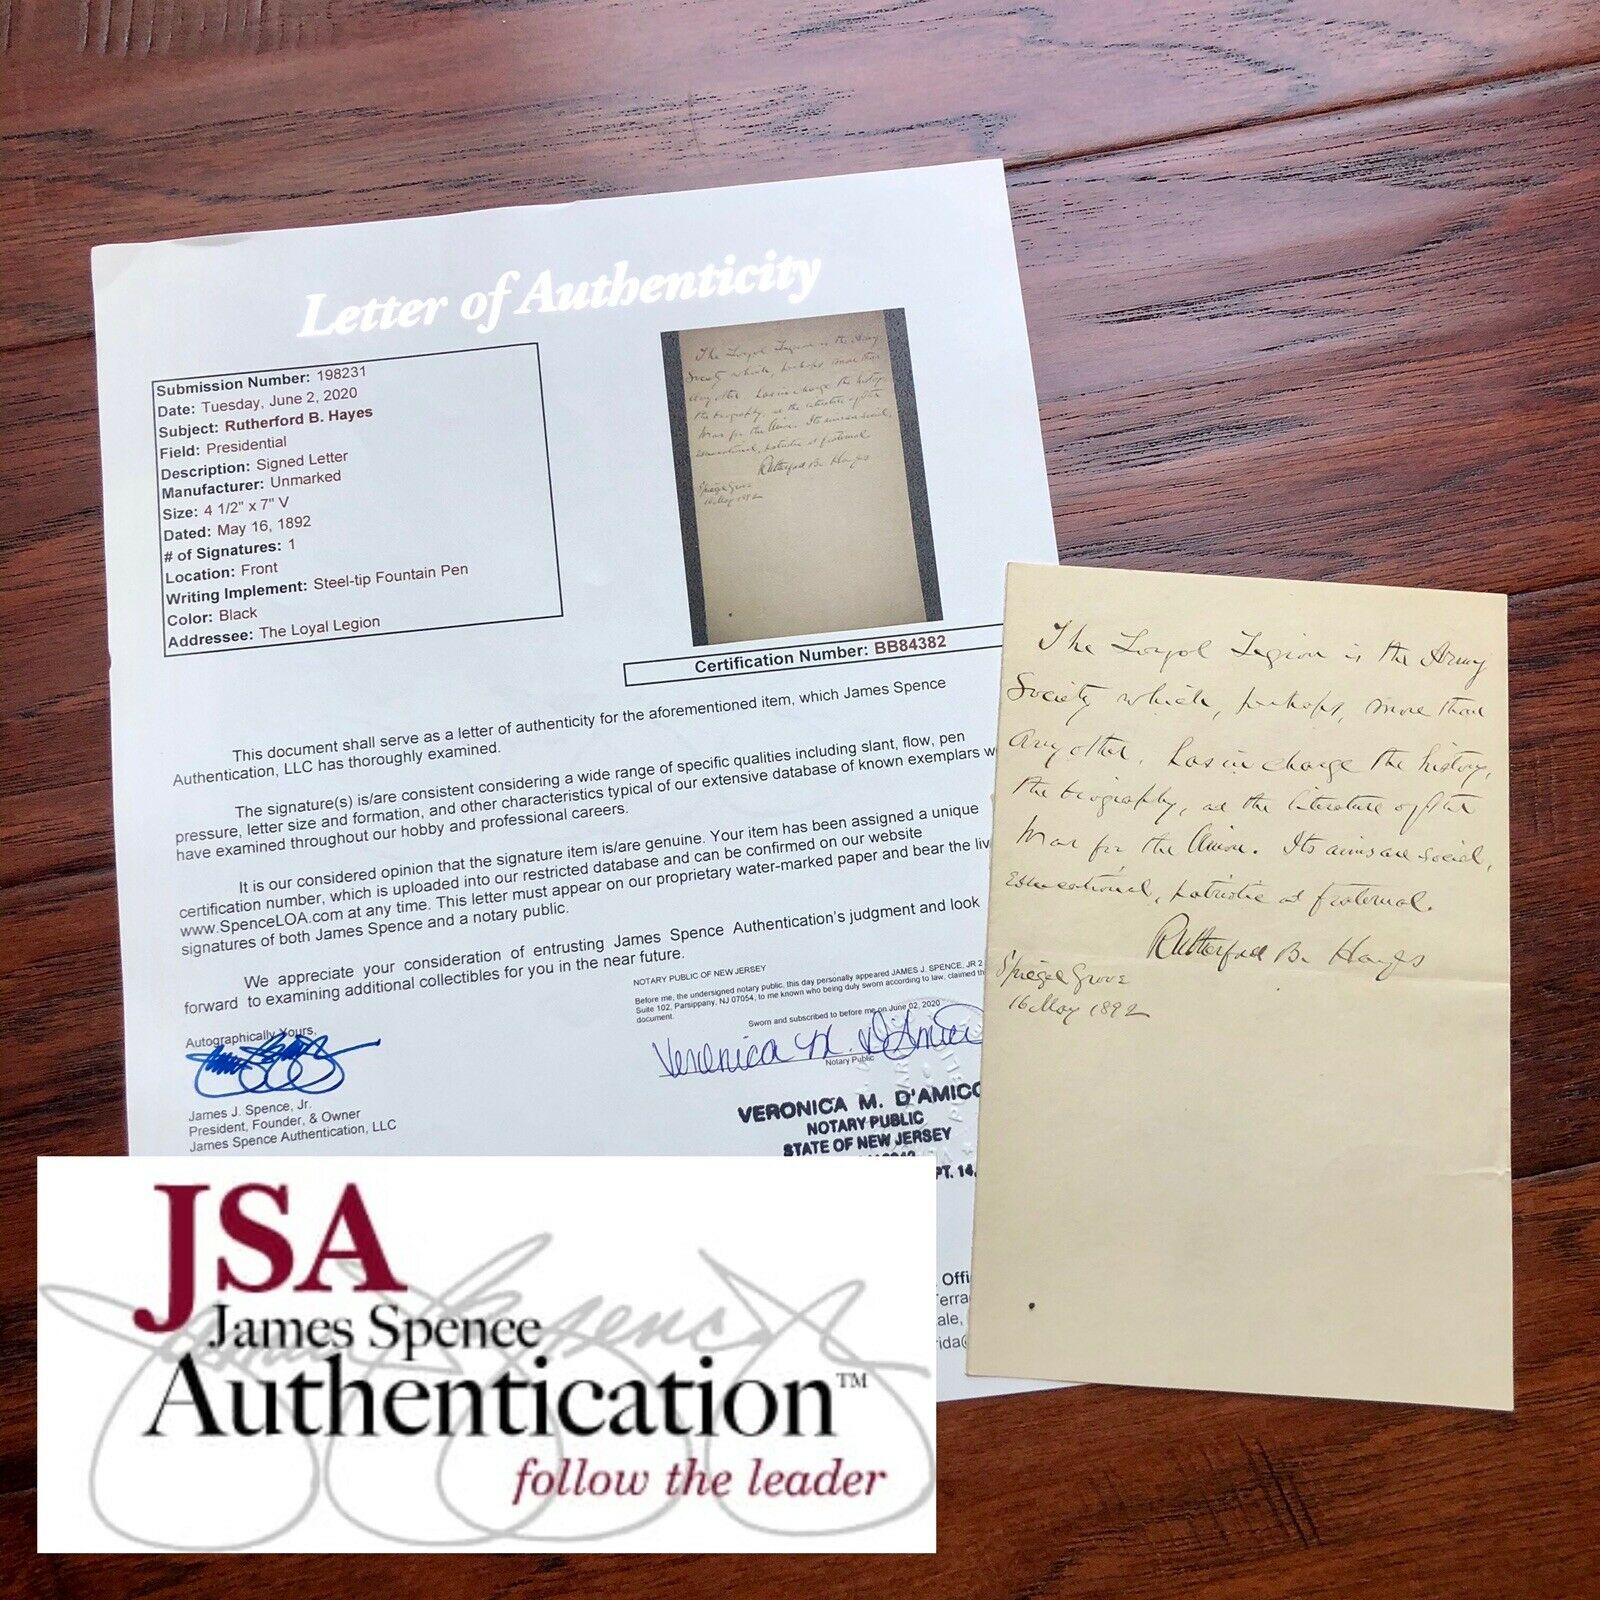 Letter of Authenticity
Submission Number: 198231
Date: Tuesday, June 2, 2020
Subject: Rutherford B. Hayes
Field: Presidential
Description: Signed Letter
Manufacturer: Unmarked
Size: 4 1/2" x 7" V
Dated: May 16, 1892
# of Signatures: 1
Location: Front
Writing Implement: Steel-tip Fountain Pen
Color: Black
Addressee: The Loyal Legion
The Loyal Legion is the Army
Society which, perhaps more than
any other, has in charge the history,
the biography, and the literature of the
War for the Union. Its aims are social,
educational, patriotic and fraternal.
Rutherford B. Hayes
Spiegel Grove
16 May 1892
Certification Number: BB84382
This document shall serve as a letter of authenticity for the aforementioned item, which James Spence
Authentication, LLC has thoroughly examined.
The signature(s) is/are consistent considering a wide range of specific qualities including slant, flow, pen
pressure, letter size and formation, and other characteristics typical of our extensive database of known exemplars w
have examined throughout our hobby and professional careers.
It is our considered opinion that the signature item is/are genuine. Your item has been assigned a unique
certification number, which is uploaded into our restricted database and can be confirmed on our website
www.SpenceLOA.com at any time. This letter must appear on our proprietary water-marked paper and bear the liv
signatures of both James Spence and a notary public.
We appreciate your consideration of entrusting James Spence Authentication's judgment and look
forward to examining additional collectibles for you in the near future.
Autographically Yours,
James J. Spence, Jr.
President, Founder, & Owner
James Spence Authentication, LLC
NOTARY PUBLIC OF NEW JERSEY
Before me, the undersigned notary public, this day personally appeared JAMES J. SPENCE, JR 2
Suite 102, Parsippany, NJ 07054, to me known who being duly sworn according to law, claimed th
document.
Sworn and subscribed to before me on June 02, 2020
Veronica M. D'Amico
Notary Public
VERONICA M. D'AMICO
NOTARY PUBLIC
STATE OF NEW JERSEY
PT. 14,
Offi
erra
ale,
rida
The Loyal Legion is the Army
Society which, perhaps, more than
any other, has in charge the history,
the biography, and the literature of the
War for the Union. Its aims are social,
educational, patriotic and fraternal.
Rutherford B. Hayes
Spiegel Grove
16 May 1892
JSA
James Spence
Authentication™
follow the leader